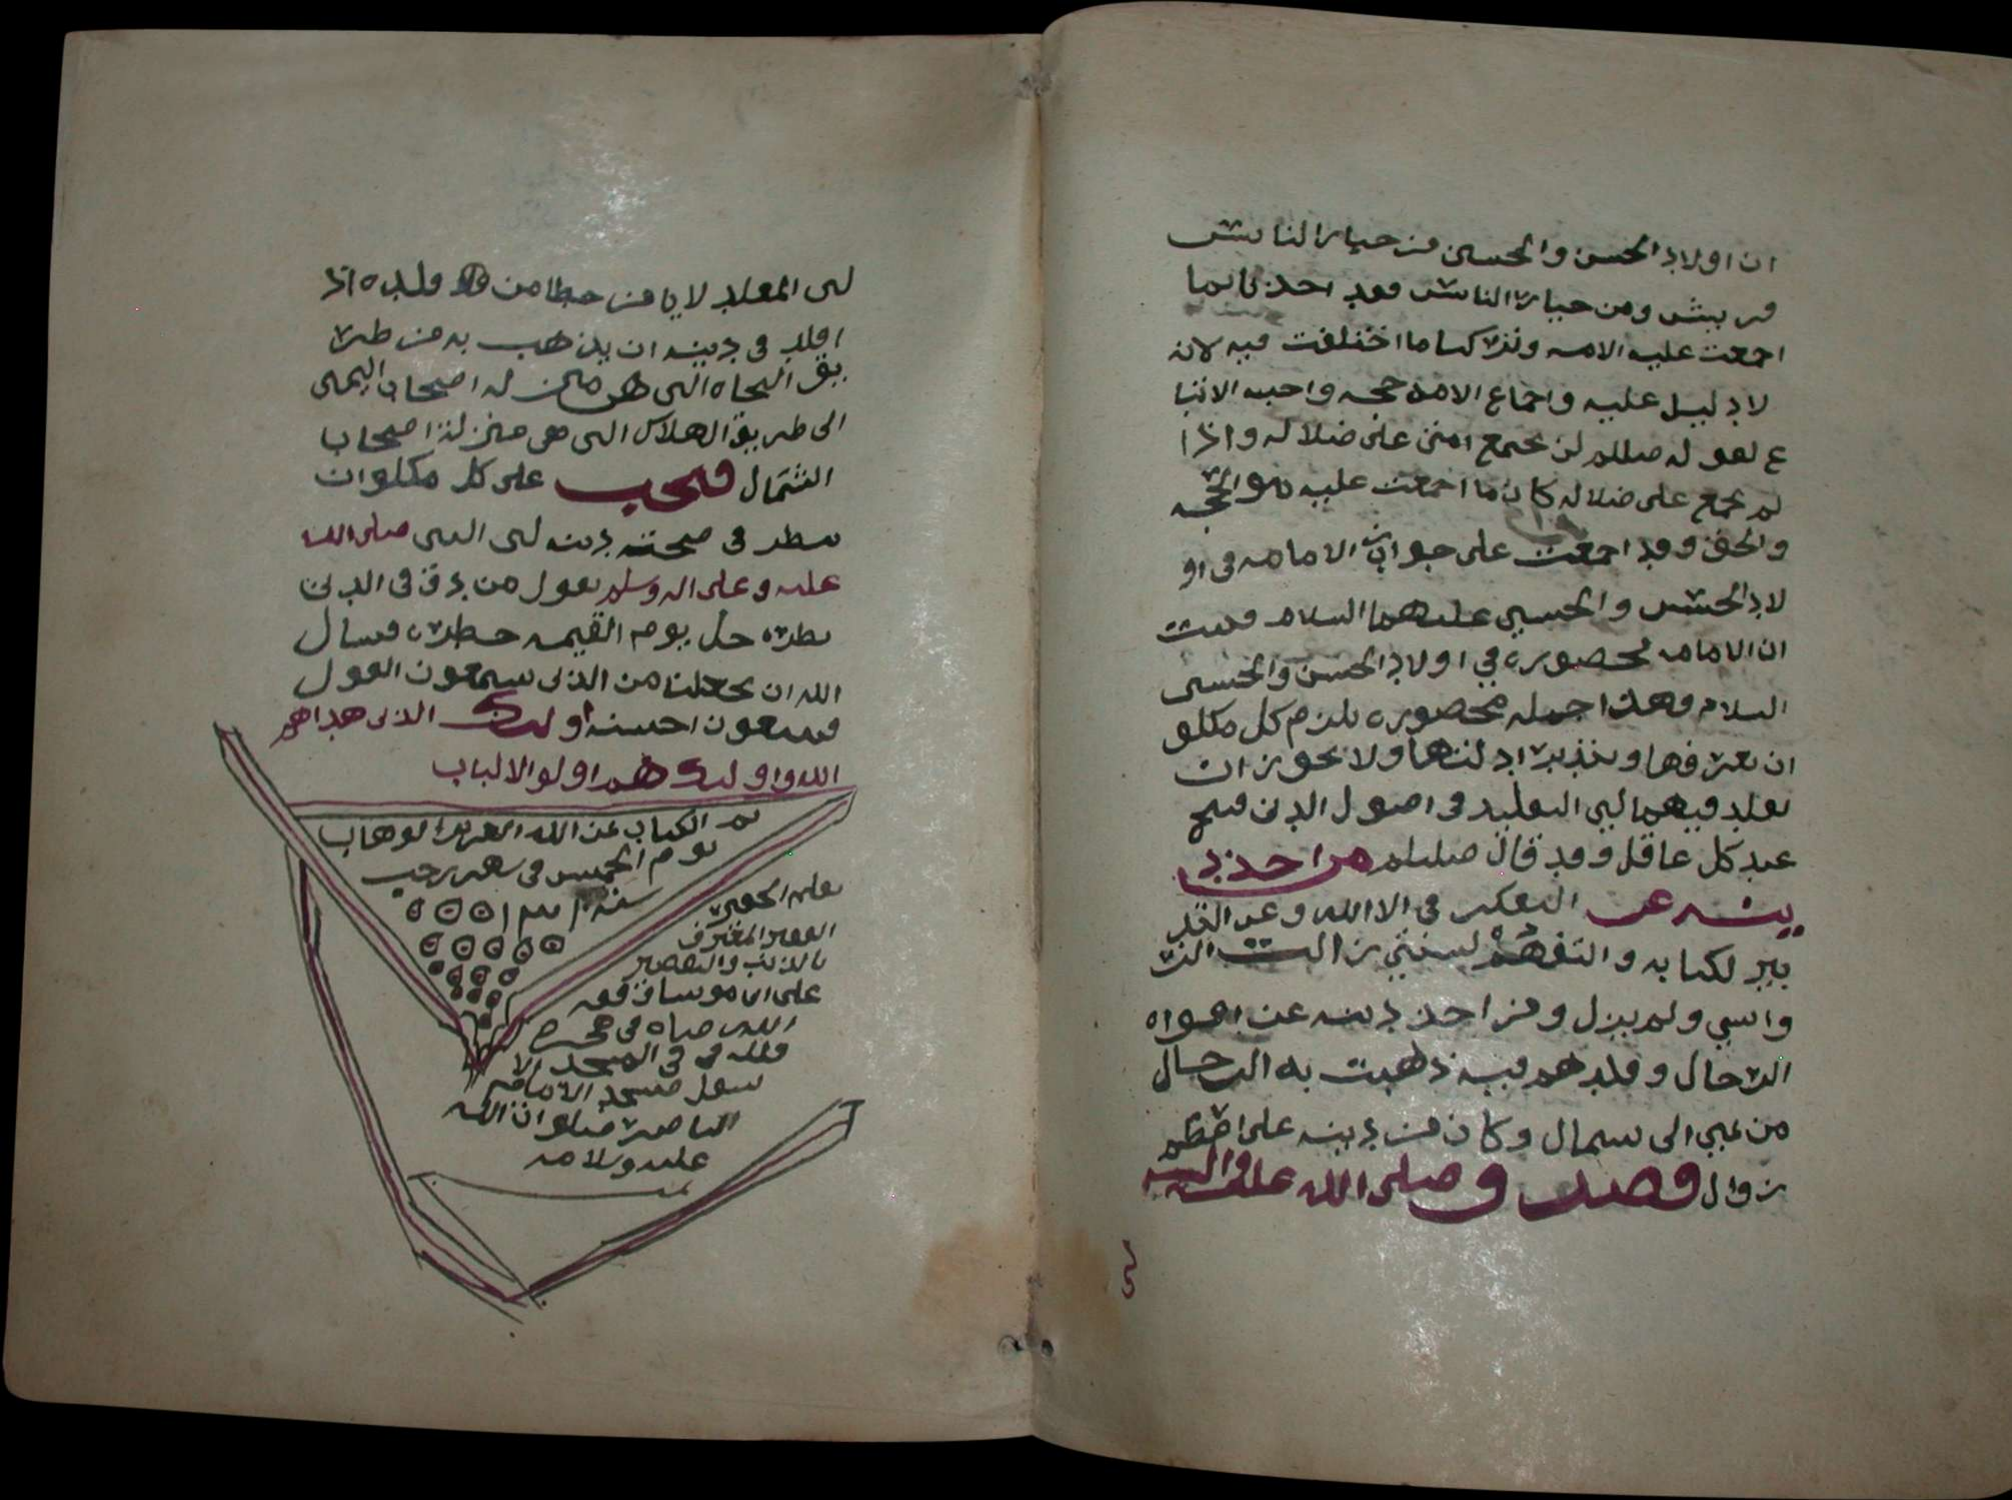 ان اولاد الحسن والحسين من خيار الناس
قريش ومن خيار الناس فقد اخذنا بما
اجمعت عليه الامه وتركنا ما اختلفت فيه لانه
لا دليل عليه واجماع الامه حجه واجبه الاتبا
ع لقوله صللم لن تجتمع امتي على ضلاله واذا
لم تجمع على ضلاله كان ما اجمعت عليه هو الحجه
والحق وقد اجمعت على جواز الامامه في او
لاد الحسن والحسين عليهما السلام فثبت
ان الامامه محصوره في اولاد الحسن والحسين
السلام فهذا جمله محصوره يلزم كل مكلو
ان يعرفها و ادلتها ولا يجوز ان
يقلد فيهما التقليد في اصول الدين قبيح
عند كل عاقل وقد قال صللم من اخذ د
ينه عن التفكر في الا الله وعن التد
بير لكتابه والتفهم لسنتي زالت الر
واسي ولم يزل ومن اخذ دينه عن افواه
الرجال وقلدهم فيه ذهبت به الرجال
من يمين الى شمال وكان من دينه على اعظم
زوال وصلى الله على واله
لان المقلد لا يامن خطا من قلده اذ
اقلد في دينه ان يذهب به من طر
يق النجاه التي هي منزله اصحاب اليمين
الى طريق الهلاك التي هي منزلة اصحاب
الشمال فيجب على كل مكلو ان
ينظر في صحة دينه لان النبي صلى الله
عليه وعلى اله وسلم يقول من دق في الدين
نظره جل يوم القيمه خطره فنسال
الله ان يجعلنا من الذين يسمعون القول
فيتبعون احسنه اوليك الذين هداهم
الله واوليك هم اولو الالباب
تم الكتاب بمن الله العزيز الوهاب
يوم الخميس في شهر رجب
سنه
بقلم الحقير
الفقير المعترف
بالذنب والتقصير
على ابن موسا وفقه
الله في
في المسجد الا
سفل مسجد الامام
الناصر صلوات الله
عليه وسلامه